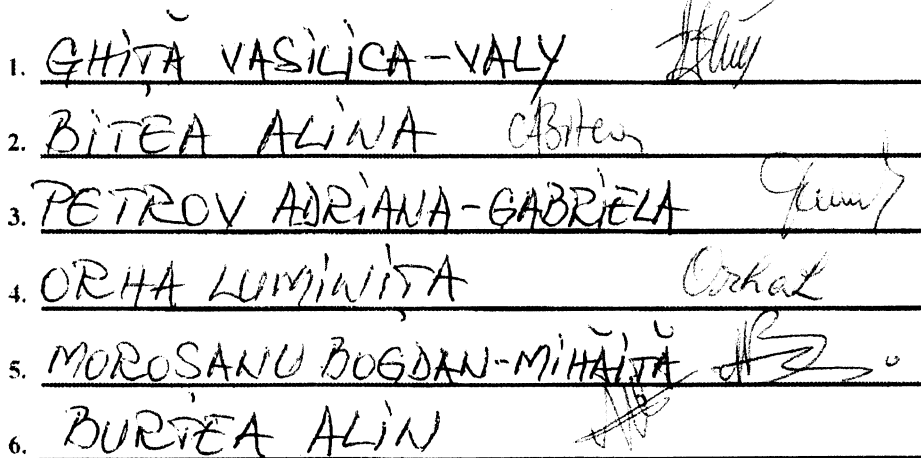 1. GHIȚĂ VASILICA-VALY
2. BITEA ALINA CABitea
3. PETROV ADRIANA-GABRIELA
4. ORHA LUMINIȚA OrhaL
5. MOROSANU BOGDAN-MIHĂIȚĂ
6. BURTEA ALIN